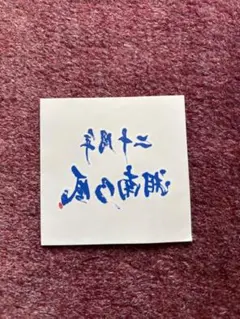 二十周年
湘南乃風